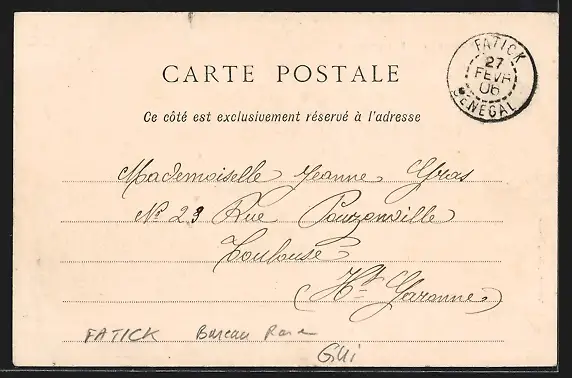 CARTE POSTALE
Ce côté est exclusivement réservé à l'adresse
FATICK
27
FEVR
06
SENEGAL
Mademoiselle Jeanne Gras
No 23 Rue Pouzonville
Toulouse
(Hte Garonne)
FATICK Bureau Rare